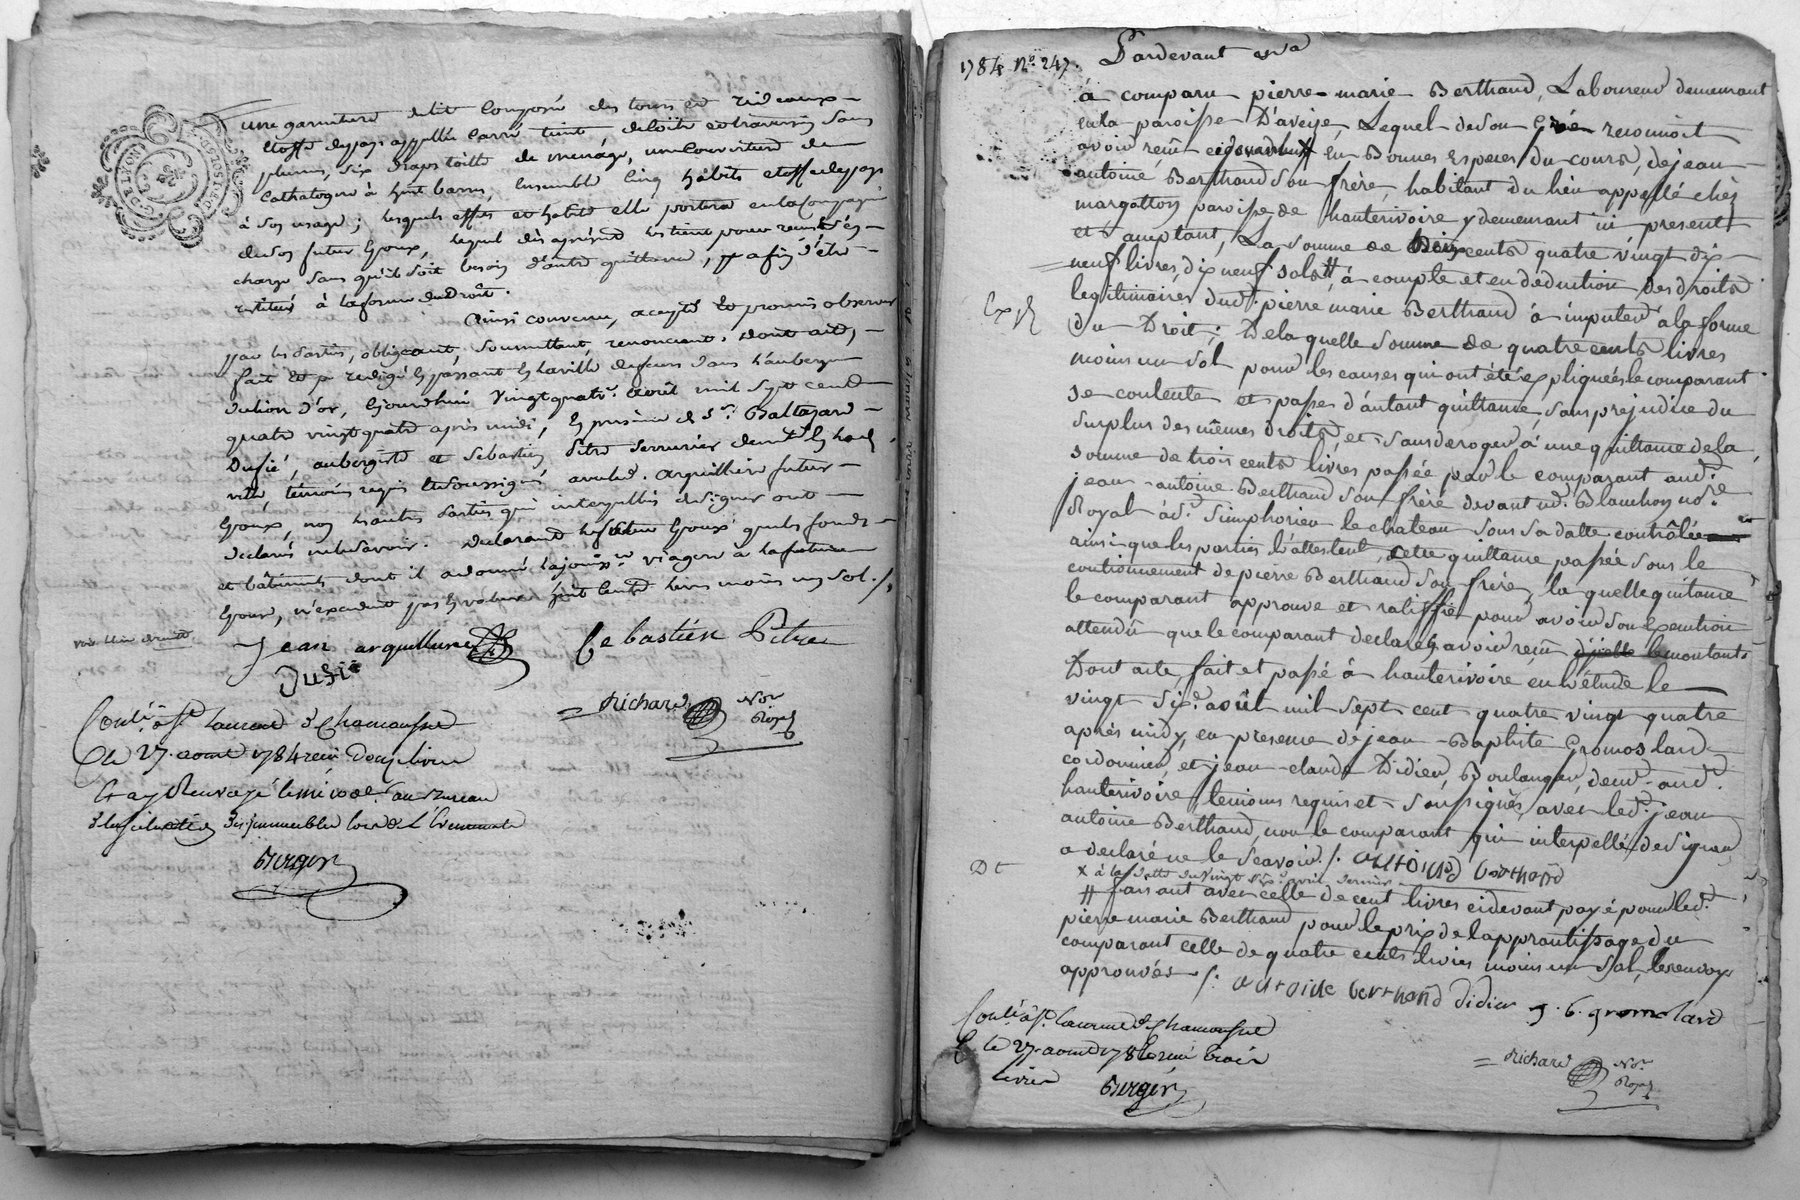 une garniture delit Composé des tours et rideaux
Etoffe depays appellée Carré teint
plumes, six draps toille de menage, une Couverture de
Cathalogne à huit barres, Ensemble Cinq habits etoffe depays
à son usage; lesquels effets et habits elle portera en la Compagnie
duSon futur Epoux, lequel dès aprésent s'en
charge Sans qu'il soit besoin d'autre quittance, affin d'être
restitués à laforme duDroit.
Ainsi convenu, accepté Et promis observer
par les Parties, obligeant, Soumettant, renonceant. Dont acte,
fait Et
du lion d'or, Cejourdhui vingtquatre. août mil Sept Cent
quatre vingtquatre après midi, En présence de Sr. Baltazard
Dufié, aubergiste et Sébastien Pitre Serrurier
ville, témoins requis et Soussignés avec led. arquilliere futur
Epoux, non les autres Parties qui interpellées designer ont
declarés nele Savoir. Declarant le futur Epoux que les fonds
et bâtiments dont il adonné la jouisse. viagere à la future
Epouse, n'excedent pas la valeur huit Cents livres moins un Sol. /.
Jean arquilliere Sebastien Pitre
Dufié
Richard Nore Royal
Conlé. à St. Laurent d'Chamousset
Le 27. aoust 1784 reçu Douze livres
Berger
1784 No. 247.
Pardevant &a
à comparu pierre-marie Berthaud, Laboureur demeurant
enla paroisse D'aveize, Lequel deson Gré reconnoit
avoir reçu cidevant X en Bonnes Especes du cours, dejean
antoine Berthaud Son frère, habitant du lieu appellé chèz
margatton paroisse de hauterivoire y demeurant ici present
et acceptant, La somme de Deux cents quatre vingt dix
neuf livres, dix neuf sols #, à compte et en deduction des droits
legitimaires dud. pierre marie Berthaud à imputer à la forme
du Droit; De la quelle somme de quatre cents livres
moins un sol pour les causes qui ont été expliqueés le comparant
se contente et passe d'autant quittance, sans prejudice du
Surplus des mêmes droits, et sans deroger à une quittance de la
somme de trois cents livres passée par le comparant aud.
jean-antoine Berthaud son frère devant me. Blanchon nore.
Royal à St. Simphorien le chateau sous sa datte controlée
ainsi que les parties l'attestent, cette quittance passée sous le
cautionnement de pierre Berthaud son frère, la quelle quittance
le comparant approuve et ratiffie pour avoir son execution
attendû que le comparant declare avoir reçu le montant.
Dont acte, fait et passé à hauterivoire en l'étude le
vingt six. août mil sept cent quatre vingt quatre
après midy, en presence de jean-Baptiste Gromoslard
cordonnier, et jean-claude Didier, Boulanger, demt. aud.
hauterivoire, temoins requis et soussignés, avec led. jean
antoine Berthaud, non le comparant qui interpellé de Signer
a declaré ne le Scavoir. /. antoine berthaud
X à la datte du vingt avril dernier
# faisant avec celle de cent livres cidevant payé pour led.
pierre marie Berthaud pour le prix de l'apprentissage du
comparant celle de quatre cents livres moins un sol, les renvoys
approuvés /. antoine berthand didier j. b. gromolard
Conlé. à St. Laurent d'Chamousset
Le 27. aoust 1784 reçu trois
livres Berger
Richard Nore. Royal